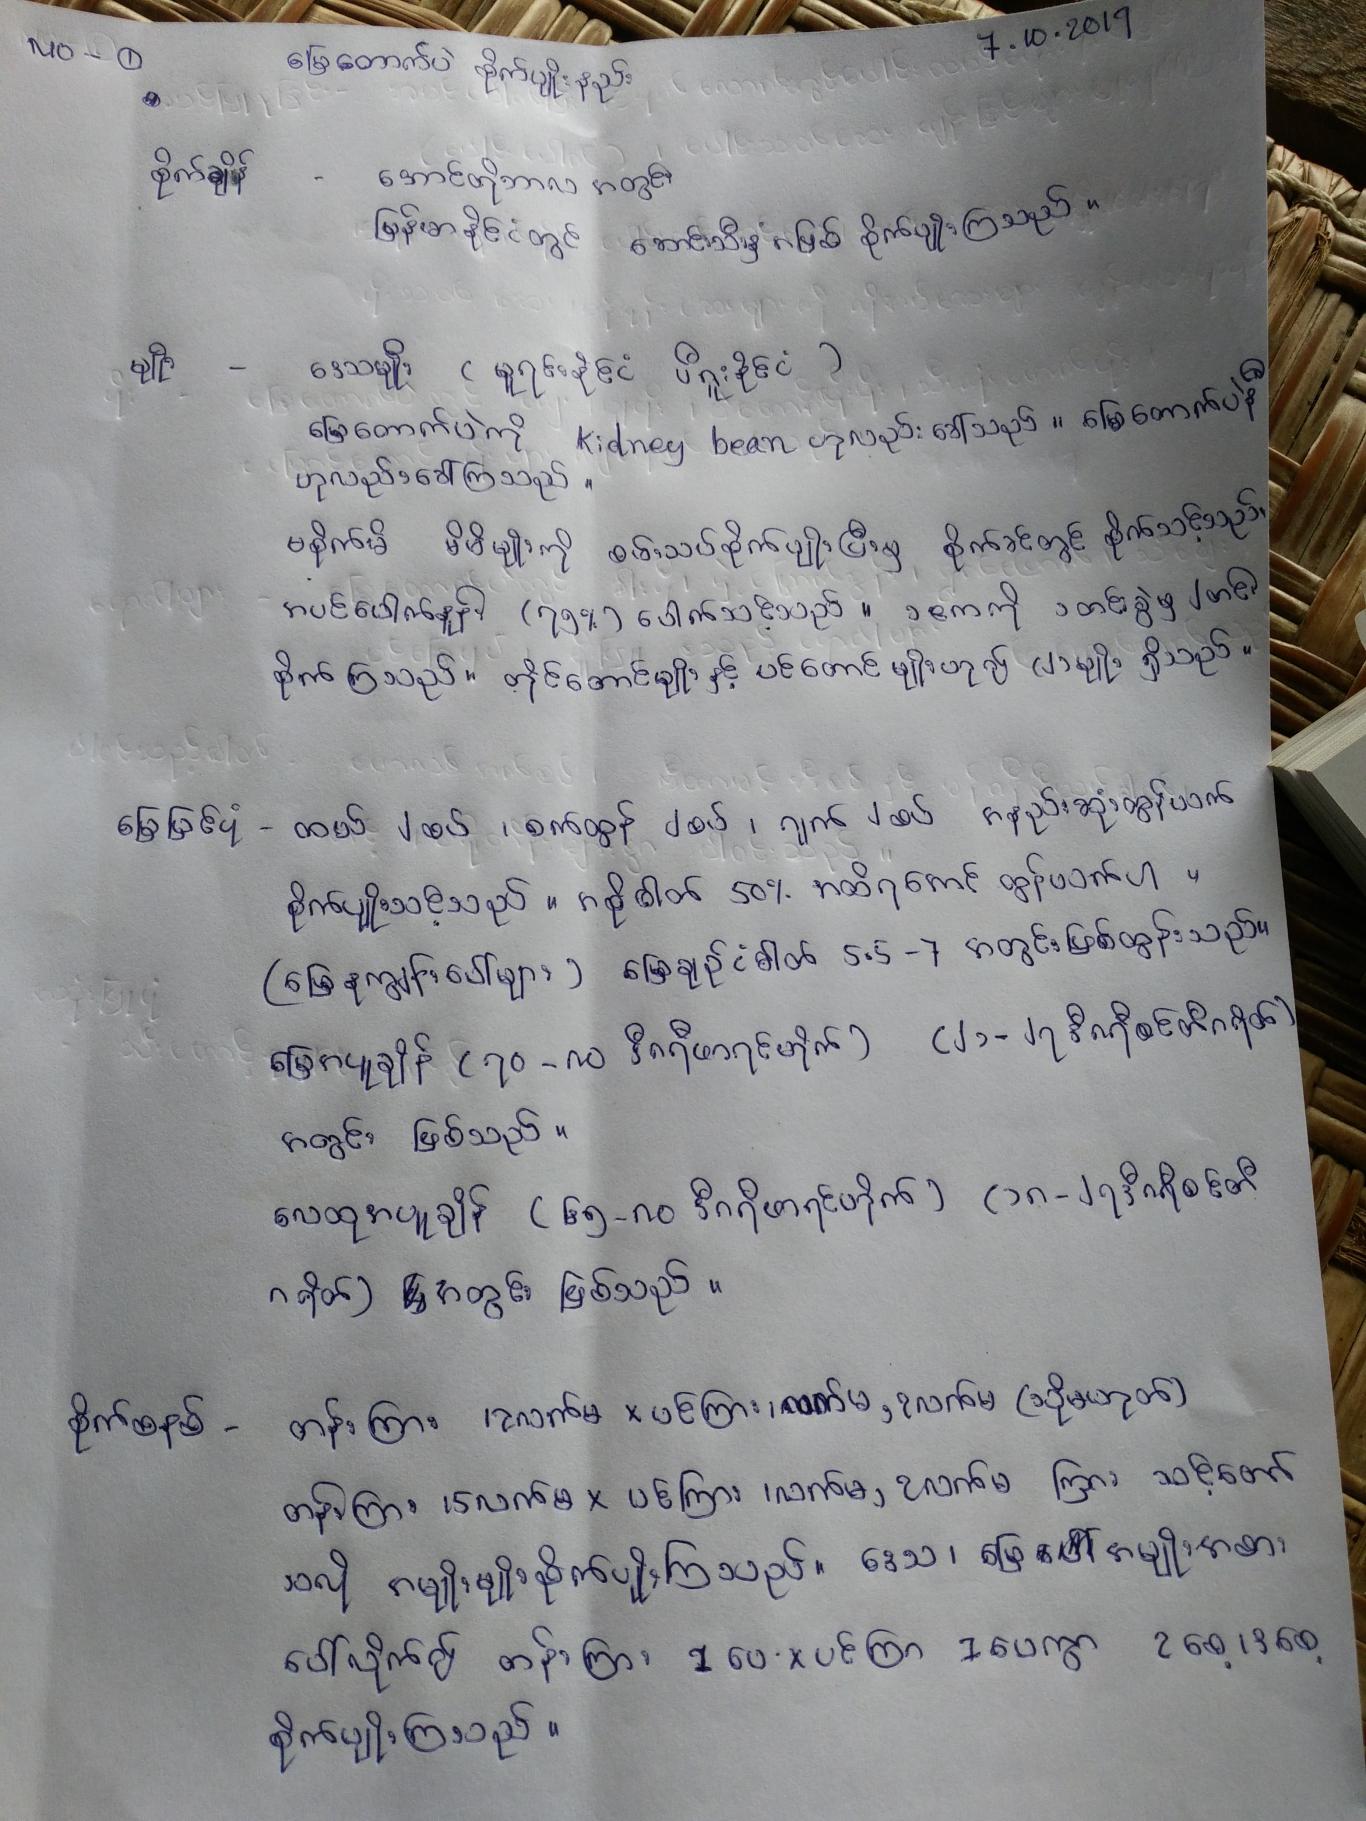 No - ①
7.10.2019
မြေထောက်ပဲ စိုက်ပျိုးနည်း
စိုက်ချိန် - အောင်တိုဘာလ အတွင်း
မြန်မာနိုင်ငံတွင် ဆောင်းသီးနှံအဖြစ် စိုက်ပျိုးကြသည်။
မျိုး - ဒေသမျိုး ( မူရင်းနိုင်ငံ ပီရူးနိုင်ငံ )
မြေထောက်ပဲကို kidney bean ဟုလည်းခေါ်သည်။ မြေထောက်ပဲနီ
ဟုလည်းခေါ်ကြသည်။
မစိုက်မီ မိမိမျိုးကို စမ်းသပ်စိုက်ပျိုးပြီးမှ စိုက်ခင်းတွင် စိုက်သင့်သည်။
အပင်ပေါက်နှုန်း (၇၅%) ပေါက်သင့်သည်။ ၁ဧကကို ၁တင်းခွဲမှ ၂တင်း
စိုက်ကြသည်။ တိုင်ထောင်မျိုးနှင့် ပင်ထောင်မျိုးဟူ၍ (၂)မျိုး ရှိသည်။
မြေပြင်ပုံ - ထယ် ၂စပ် ၊ စက်ထွန် ၂စပ် ၊ ဂျက် ၂စပ် အနည်းဆုံးထွန်ယက်
စိုက်ပျိုးသင့်သည်။ အစိုဓါတ် 50% အထိရအောင် ထွန်ယက်ပါ ။
(မြေနုကျွန်းပေါ်များ) မြေချဉ်ငံဓါတ် 5.5 - 7 အတွင်းဖြစ်ထွန်းသည်။
မြေအပူချိန် (၇၀ - ၈၀ ဒီဂရီဖာရင်ဟိုက်) (၂၁ - ၂၇ ဒီဂရီစင်တီဂရိတ်)
အတွင်း ဖြစ်သည်။
လေထုအပူချိန် (၆၅ - ၈၀ ဒီဂရီဖာရင်ဟိုက်) (၁၈ - ၂၇ ဒီဂရီစင်တီ
ဂရိတ်) အတွင်း ဖြစ်သည်။
စိုက်စနစ် - တန်းကြား 12လက်မ x ပင်ကြား 1လက်မ, 2လက်မ (သို့မဟုတ်)
တန်းကြား 15လက်မ x ပင်ကြား 1လက်မ, 2လက်မ ကြား သင့်တော်
သလို အမျိုးမျိုးစိုက်ပျိုးကြသည်။ ဒေသ၊ မြေ အမျိုးအစား
ပေါ်လိုက်၍ တန်းကြား 1 ပေ x ပင်ကြား 1 ပေကွာ 2စေ့၊ 3စေ့
စိုက်ပျိုးကြသည်။